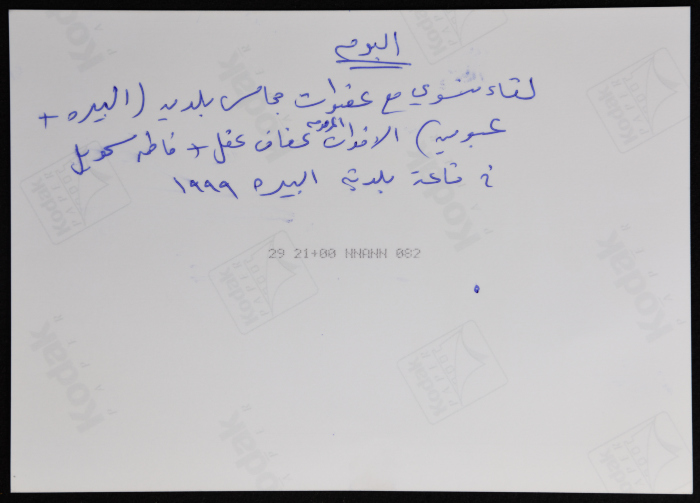 البوم
لقاء نسوي مع عضوات مجالس بلدية (البيره +
عبوين) الاخوات المرحومه عفاف عقل + فاطمه سحويل
في قاعة بلدية البيره ١٩٩٩
29 21+00 NNANN 082
Kodak